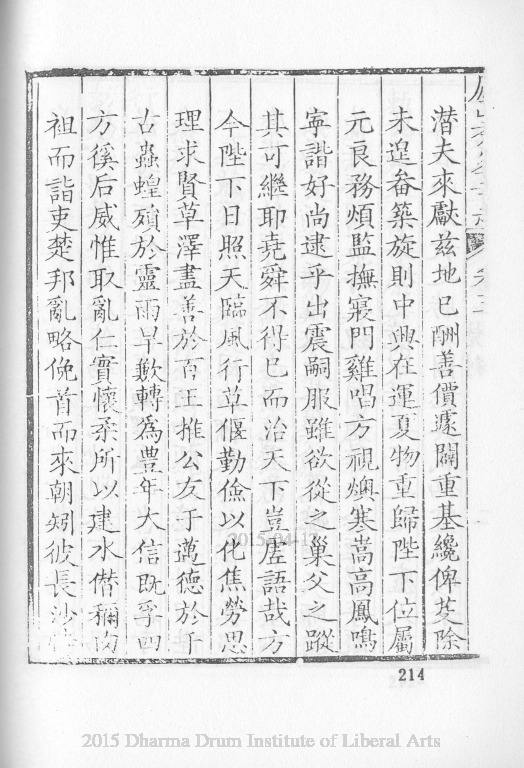 潛夫來獻兹地巳酬善價遽闢重基纔俾芟除
未遑畚築旋則中興在運夏物重歸陛下位屬
元良務煩監撫寢門雞唱方視燠寒嵩高鳳鳴
寧諧好尚逮乎出震嗣服雖欲從之巢父之蹤
其可繼耶堯舜不得已而治天下豈虛語哉方
今陛下日照天臨風行草偃勤儉以化焦勞思
理求賢草澤盡善於百王推公友于邁德於千
古蟲蝗殞於靈雨旱歉轉爲豊年大信既孚四
方徯后威惟取亂仁實懷柔所以建水僭稱肉
袒而詣吏楚邦亂略俛首而來朝矧彼長沙
214
2015 Dharma Drum Institute of Liberal Arts